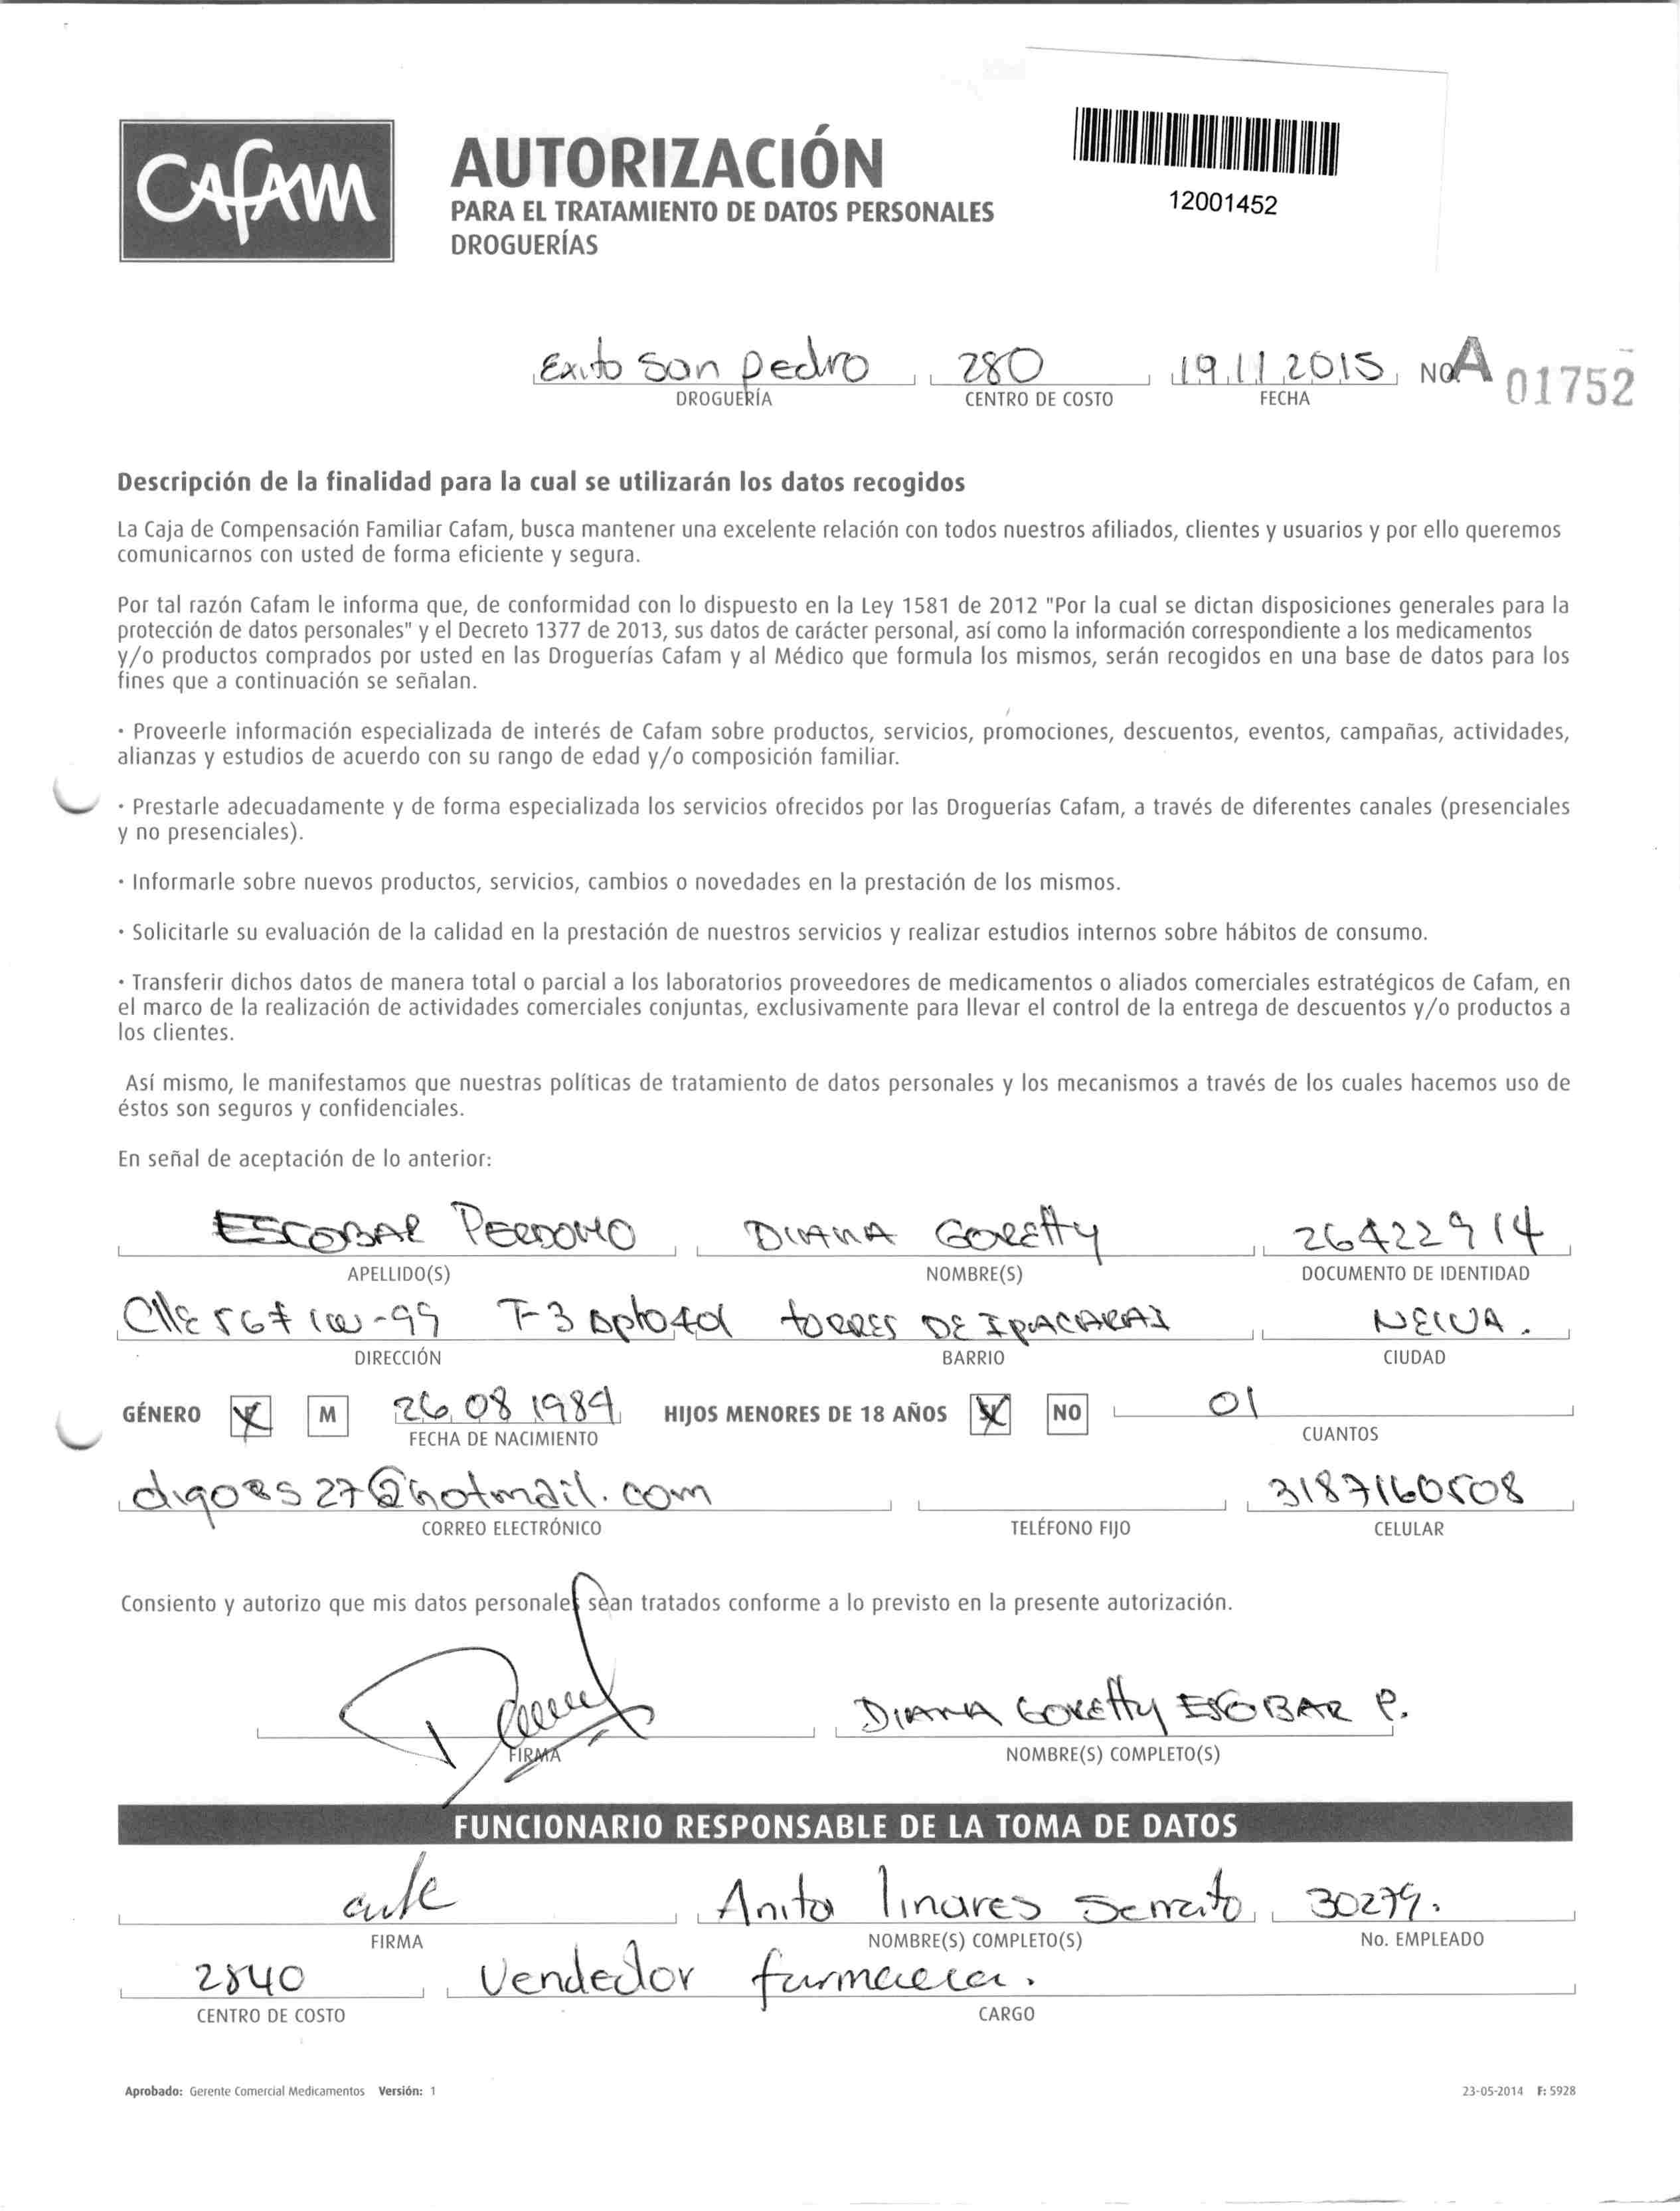 CAFAM
AUTORIZACIÓN
PARA EL TRATAMIENTO DE DATOS PERSONALES
DROGUERÍAS
12001452
Exito San pedro 280 19 11 2015 No. A 01752
DROGUERÍA CENTRO DE COSTO FECHA
Descripción de la finalidad para la cual se utilizarán los datos recogidos
La Caja de Compensación Familiar Cafam, busca mantener una excelente relación con todos nuestros afiliados, clientes y usuarios y por ello queremos
comunicarnos con usted de forma eficiente y segura.
Por tal razón Cafam le informa que, de conformidad con lo dispuesto en la Ley 1581 de 2012 "Por la cual se dictan disposiciones generales para la
protección de datos personales" y el Decreto 1377 de 2013, sus datos de carácter personal, así como la información correspondiente a los medicamentos
y/o productos comprados por usted en las Droguerías Cafam y al Médico que formula los mismos, serán recogidos en una base de datos para los
fines que a continuación se señalan.
· Proveerle información especializada de interés de Cafam sobre productos, servicios, promociones, descuentos, eventos, campañas, actividades,
alianzas y estudios de acuerdo con su rango de edad y/o composición familiar.
· Prestarle adecuadamente y de forma especializada los servicios ofrecidos por las Droguerías Cafam, a través de diferentes canales (presenciales
y no presenciales).
· Informarle sobre nuevos productos, servicios, cambios o novedades en la prestación de los mismos.
· Solicitarle su evaluación de la calidad en la prestación de nuestros servicios y realizar estudios internos sobre hábitos de consumo.
· Transferir dichos datos de manera total o parcial a los laboratorios proveedores de medicamentos o aliados comerciales estratégicos de Cafam, en
el marco de la realización de actividades comerciales conjuntas, exclusivamente para llevar el control de la entrega de descuentos y/o productos a
los clientes.
Así mismo, le manifestamos que nuestras políticas de tratamiento de datos personales y los mecanismos a través de los cuales hacemos uso de
éstos son seguros y confidenciales.
En señal de aceptación de lo anterior:
ESCOBAR PERDOMO DIANA GORETTY 26422914
APELLIDO(S) NOMBRE(S) DOCUMENTO DE IDENTIDAD
Clle 56 # 1W-99 T-3 Apto 401 TORRES DE IPACARAI NEIVA.
DIRECCIÓN BARRIO CIUDAD
GÉNERO M 26 08 1984 HIJOS MENORES DE 18 AÑOS SI NO 01
FECHA DE NACIMIENTO CUANTOS
digores27@hotmail.com 3187160508
CORREO ELECTRÓNICO TELÉFONO FIJO CELULAR
Consiento y autorizo que mis datos personales sean tratados conforme a lo previsto en la presente autorización.
DIANA GORETTY ESCOBAR P.
FIRMA NOMBRE(S) COMPLETO(S)
FUNCIONARIO RESPONSABLE DE LA TOMA DE DATOS
Anita linares Serrato 30279.
FIRMA NOMBRE(S) COMPLETO(S) No. EMPLEADO
2840 Vendedor farmacia.
CENTRO DE COSTO CARGO
Aprobado: Gerente Comercial Medicamentos Versión: 1 23-05-2014 F: 5928